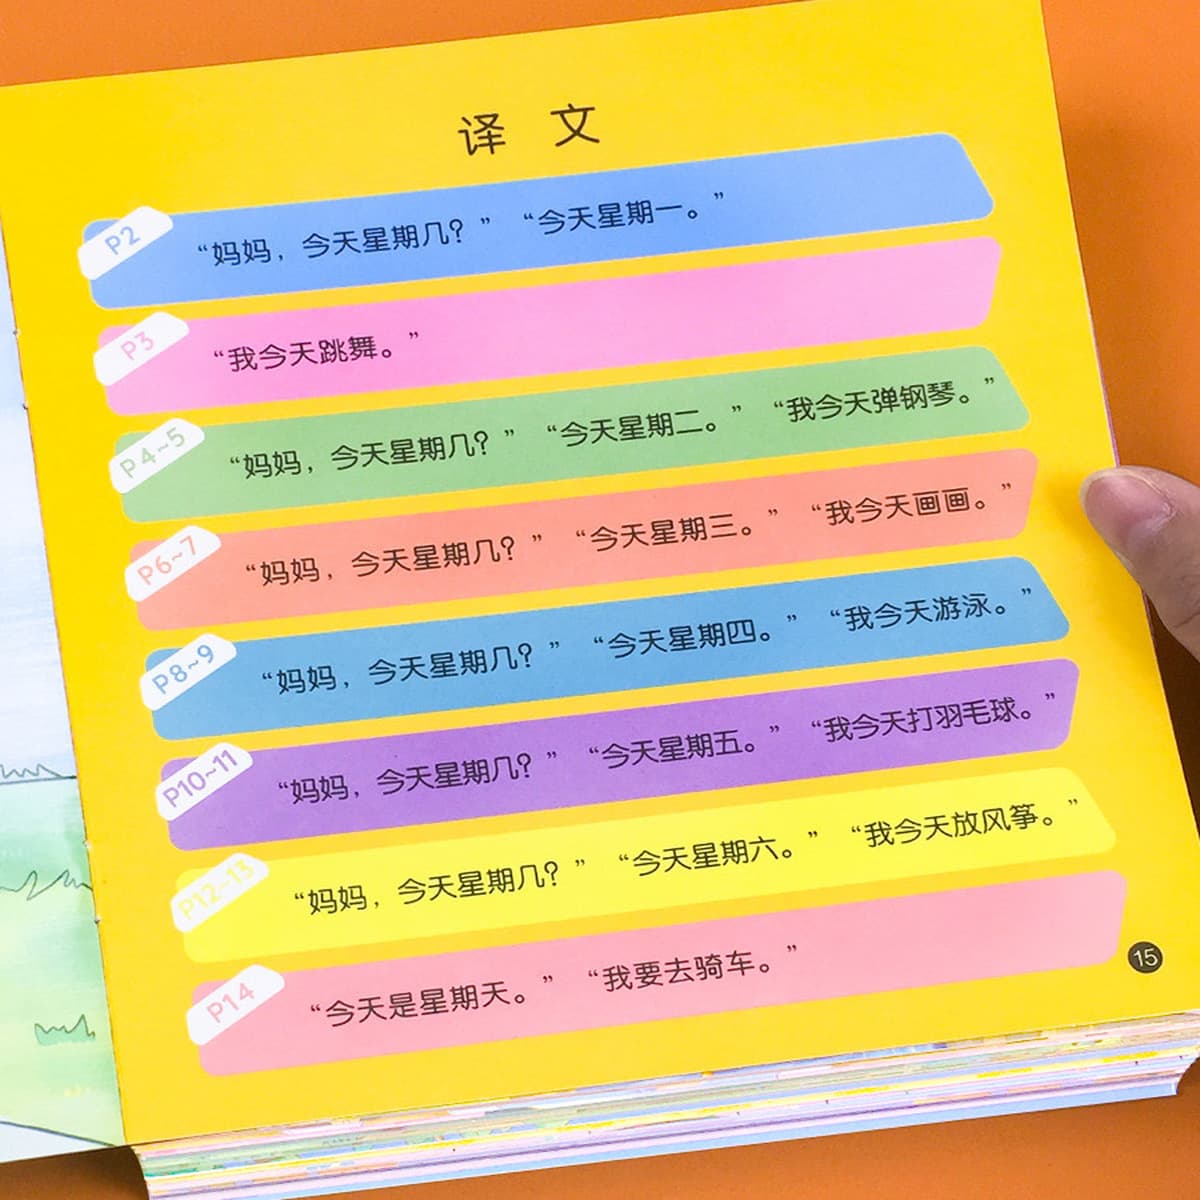 译 文
P2 “妈妈，今天星期几？” “今天星期一。”
P3 “我今天跳舞。”
P4~5 “妈妈，今天星期几？” “今天星期二。” “我今天弹钢琴。”
P6~7 “妈妈，今天星期几？” “今天星期三。” “我今天画画。”
P8~9 “妈妈，今天星期几？” “今天星期四。” “我今天游泳。”
P10~11 “妈妈，今天星期几？” “今天星期五。” “我今天打羽毛球。”
P12~13 “妈妈，今天星期几？” “今天星期六。” “我今天放风筝。”
P14 “今天是星期天。” “我要去骑车。”
15